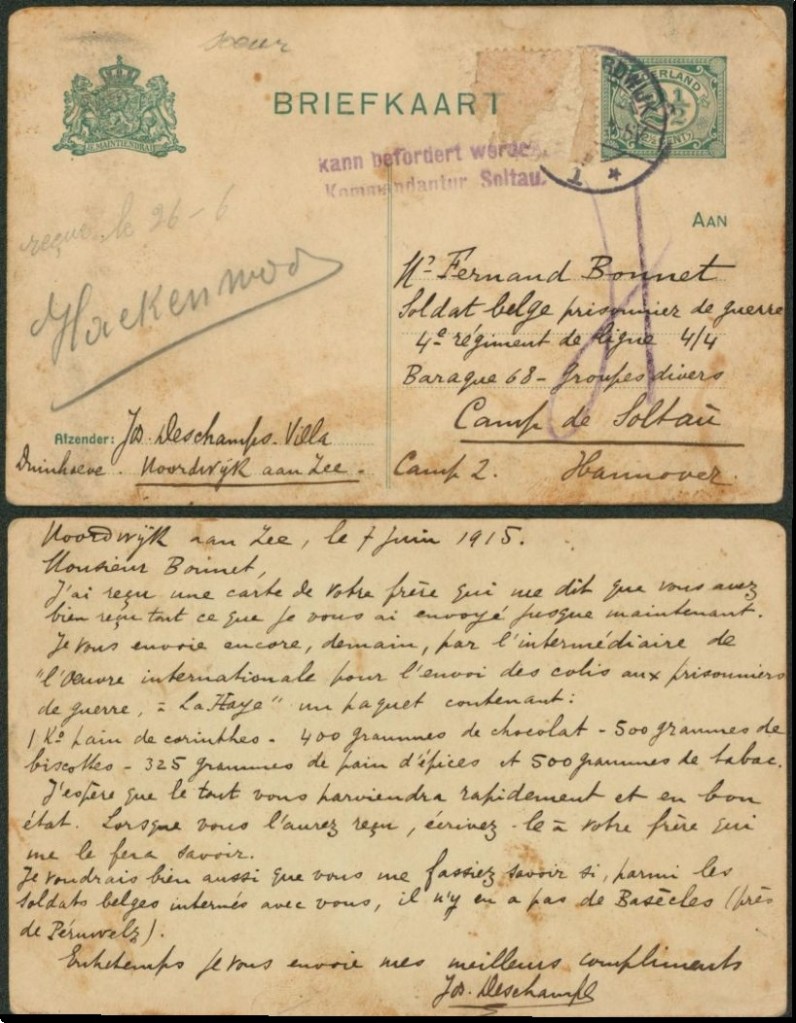 JE MAINTIENDRAI
BRIEFKAART
RDWIJK
1
NEDERLAND
2½ CENT
kann befördert werde
Kommandantur Soltau.
AAN
reçue le 26-6
Hackenwod
Mr Fernand Bonnet
Soldat belge prisonnier de guerre
4e régiment de ligne 4/4
Baraque 68 - Groupes divers
Camp de Soltau
Camp 2. Hannover.
Afzender: Jos. Deschamps. Villa
Duinhoeve. Noordwijk aan Zee -
Noordwijk aan Zee, le 7 Juin 1915.
Monsieur Bonnet,
J'ai reçu une carte de votre frère qui me dit que vous avez
bien reçu tout ce que je vous ai envoyé jusque maintenant.
Je vous envoie encore, demain, par l'intermédiaire de
"l'Oeuvre internationale pour l'envoi des colis aux prisonniers
de guerre, à La Haye" un paquet contenant:
1 Ko pain de corinthes - 400 grammes de chocolat - 500 grammes de
biscottes - 325 grammes de pain d'épices et 500 grammes de tabac.
J'espère que le tout vous parviendra rapidement et en bon
état. Lorsque vous l'aurez reçu, écrivez-le à votre frère qui
me le fera savoir.
Je voudrais bien aussi que vous me fassiez savoir si, parmi les
soldats belges internés avec vous, il n'y en a pas de Basècles (près
de Péruwelz).
Entretemps je vous envoie mes meilleurs compliments
Jos. Deschamps